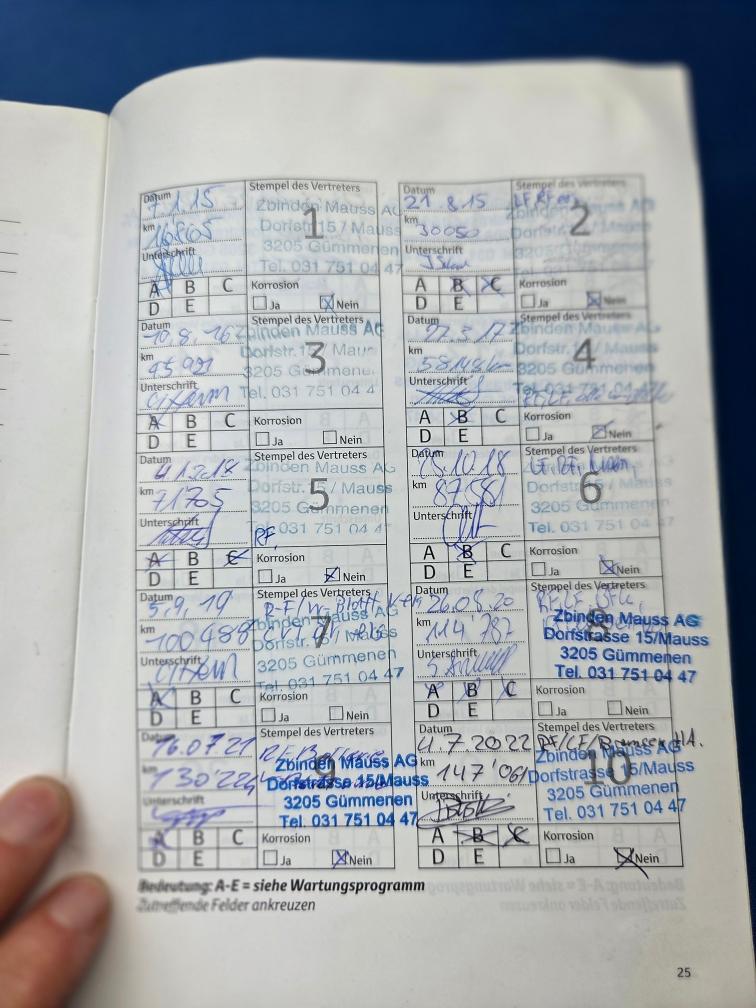 Datum
7.1.15
km
16805
Unterschrift
Stempel des Vertreters
1
Zbinden Mauss AG
Dorfstr. 15 / Mauss
3205 Gümmenen
Tel. 031 751 04 47
A B C
D E
Korrosion
Ja Nein
Datum
21.8.15
km
30050
Unterschrift
Stempel des Vertreters
2
LF, RF
A B C
D E
Korrosion
Ja Nein
Datum
10.8.16
km
45 991
Unterschrift
Stempel des Vertreters
3
Zbinden Mauss AG
Dorfstr. 1 Mau
3205 Gümmene
Tel. 031 751 04 4
A B C
D E
Korrosion
Ja Nein
Datum
km
Unterschrift
Stempel des Vertreters
4
Zbinden Mauss AG
Dorfstr.
3205 Gümmenen
Tel. 031 751 04 47
A B C
D E
Korrosion
Ja Nein
Datum
km
71765
Unterschrift
Stempel des Vertreters
5
Zbinden Mauss AG
Dorfstr. 15 / Mauss
3205 Gümmenen
RF, Tel. 031 751 04 47
A B C
D E
Korrosion
Ja Nein
Datum
15.10.18
km
87581
Unterschrift
Stempel des Vertreters
6
Zbinden Mauss AG
Dorfstr. 15 / Mauss
3205 Gümmenen
Tel. 031 751 04 47
A B C
D E
Korrosion
Ja Nein
Datum
5.9.19
km
100488
Unterschrift
Stempel des Vertreters
7
Zbinden Mauss AG
Dorfstr. 15 / Mauss
3205 Gümmenen
Tel. 031 751 04 47
A B C
D E
Korrosion
Ja Nein
Datum
26.08.20
km
114'787
Unterschrift
Stempel des Vertreters
8
Zbinden Mauss AG
Dorfstrasse 15/Mauss
3205 Gümmenen
Tel. 031 751 04 47
A B C
D E
Korrosion
Ja Nein
Datum
16.07.21
km
130'224
Unterschrift
Stempel des Vertreters
9
Zbinden Mauss AG
Dorfstrasse 15/Mauss
3205 Gümmenen
Tel. 031 751 04 47
A B C
D E
Korrosion
Ja Nein
Datum
4.7.2022
km
147'061
Unterschrift
Stempel des Vertreters
10
RF/LF/Bremsen HA.
Zbinden Mauss AG
Dorfstrasse 15/Mauss
3205 Gümmenen
Tel. 031 751 04 47
A B C
D E
Korrosion
Ja Nein
Bedeutung: A-E = siehe Wartungsprogramm
Zutreffende Felder ankreuzen
25